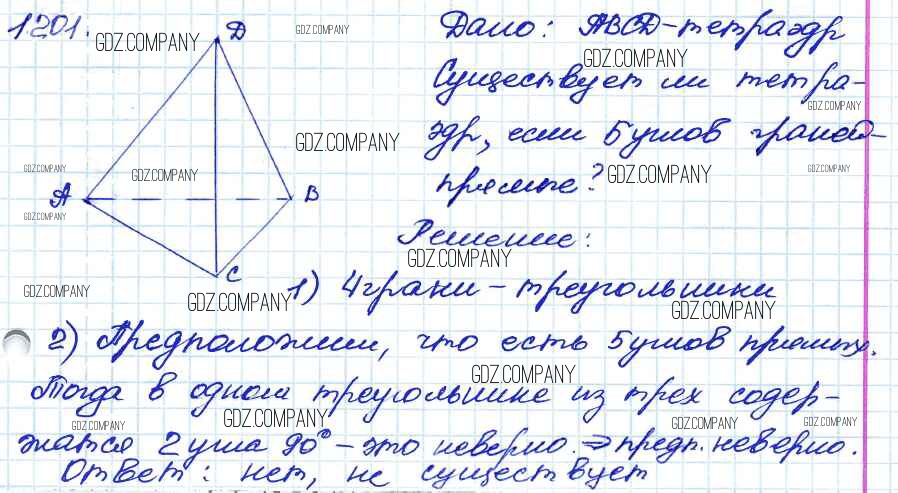 1.201.
GDZ.COMPANY
D
GDZ.COMPANY
Дано: ABCD-тетраэдр
GDZ.COMPANY
Существует ли тетра-
GDZ.COMPANY
эдр, если 5 углов граней-
GDZ.COMPANY
прямые?
GDZ.COMPANY
GDZ.COMPANY
GDZ.COMPANY
A
B
GDZ.COMPANY
Решение:
GDZ.COMPANY
C
1) 4 грани - треугольники
GDZ.COMPANY
GDZ.COMPANY
GDZ.COMPANY
2) Предположим, что есть 5 углов прямых.
GDZ.COMPANY
Тогда в одном треугольнике из трех содер-
GDZ.COMPANY
GDZ.COMPANY
GDZ.COMPANY
GDZ.COMPANY
жатся 2 угла 90° - это неверно. ⇒ предп. неверно.
Ответ: нет, не существует